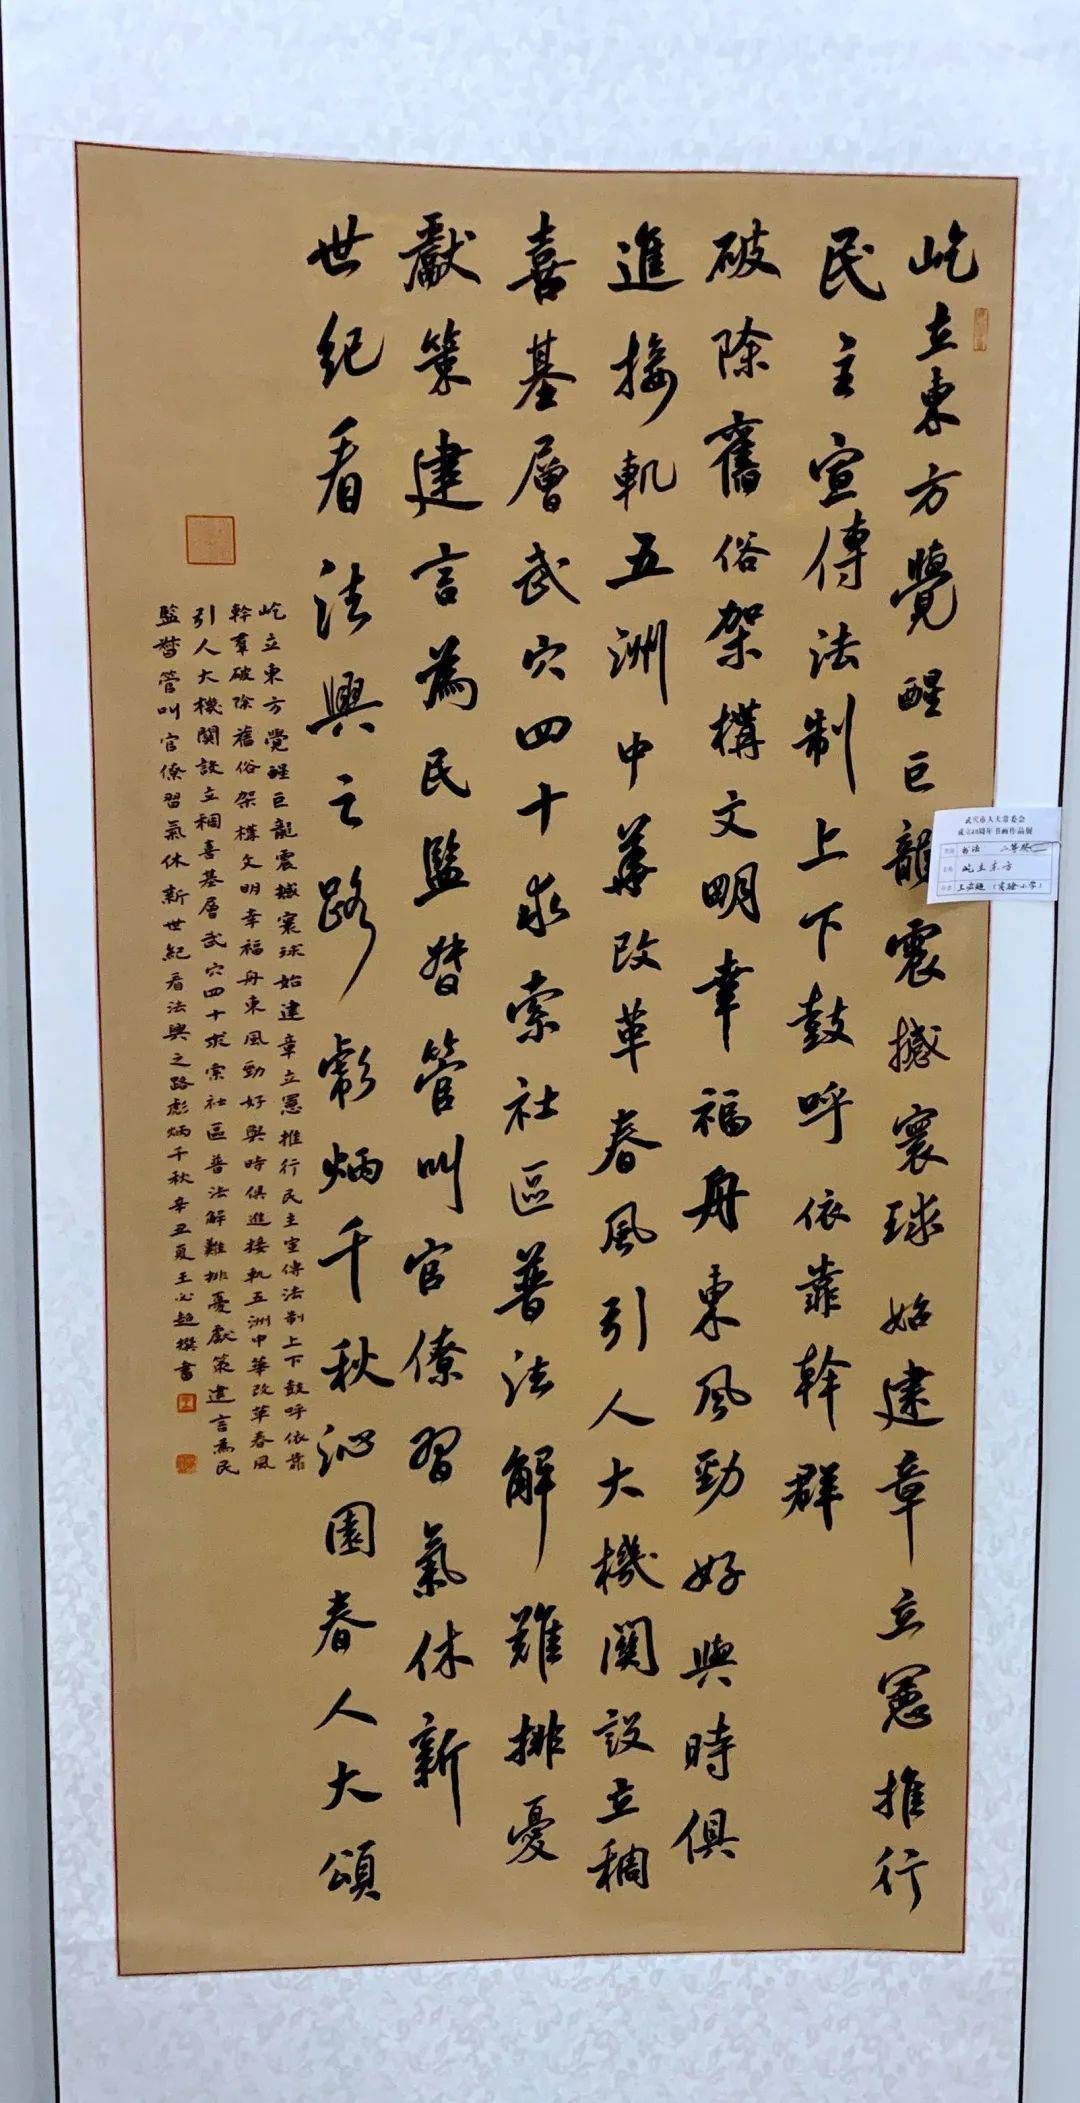 屹立東方覺醒巨龍震撼寰球始建章立憲推行
民主宣傳法制上下鼓呼依靠幹群
破除舊俗架構文明幸福舟東風勁好與時俱
進接軌五洲中華改革春風引人大機關設立稠
喜基層武穴四十求索社區普法解難排憂
獻策建言為民監督管叫官僚習氣休新
世紀看法興之路彪炳千秋沁園春人大頌
屹立東方覺醒巨龍震撼寰球始建章立憲推行民主宣傳法制上下鼓呼依靠
幹羣破除舊俗架構文明幸福舟東風勁好與時俱進接軌五洲中華改革春風
引人大機關設立稠喜基層武穴四十求索社區普法解難排憂獻策建言為民
監督管叫官僚習氣休新世紀看法興之路彪炳千秋辛丑夏王必超撰書
武穴市人大常委会
成立40周年书画作品展
书法 二等奖
屹立东方
王必超（实验小学）